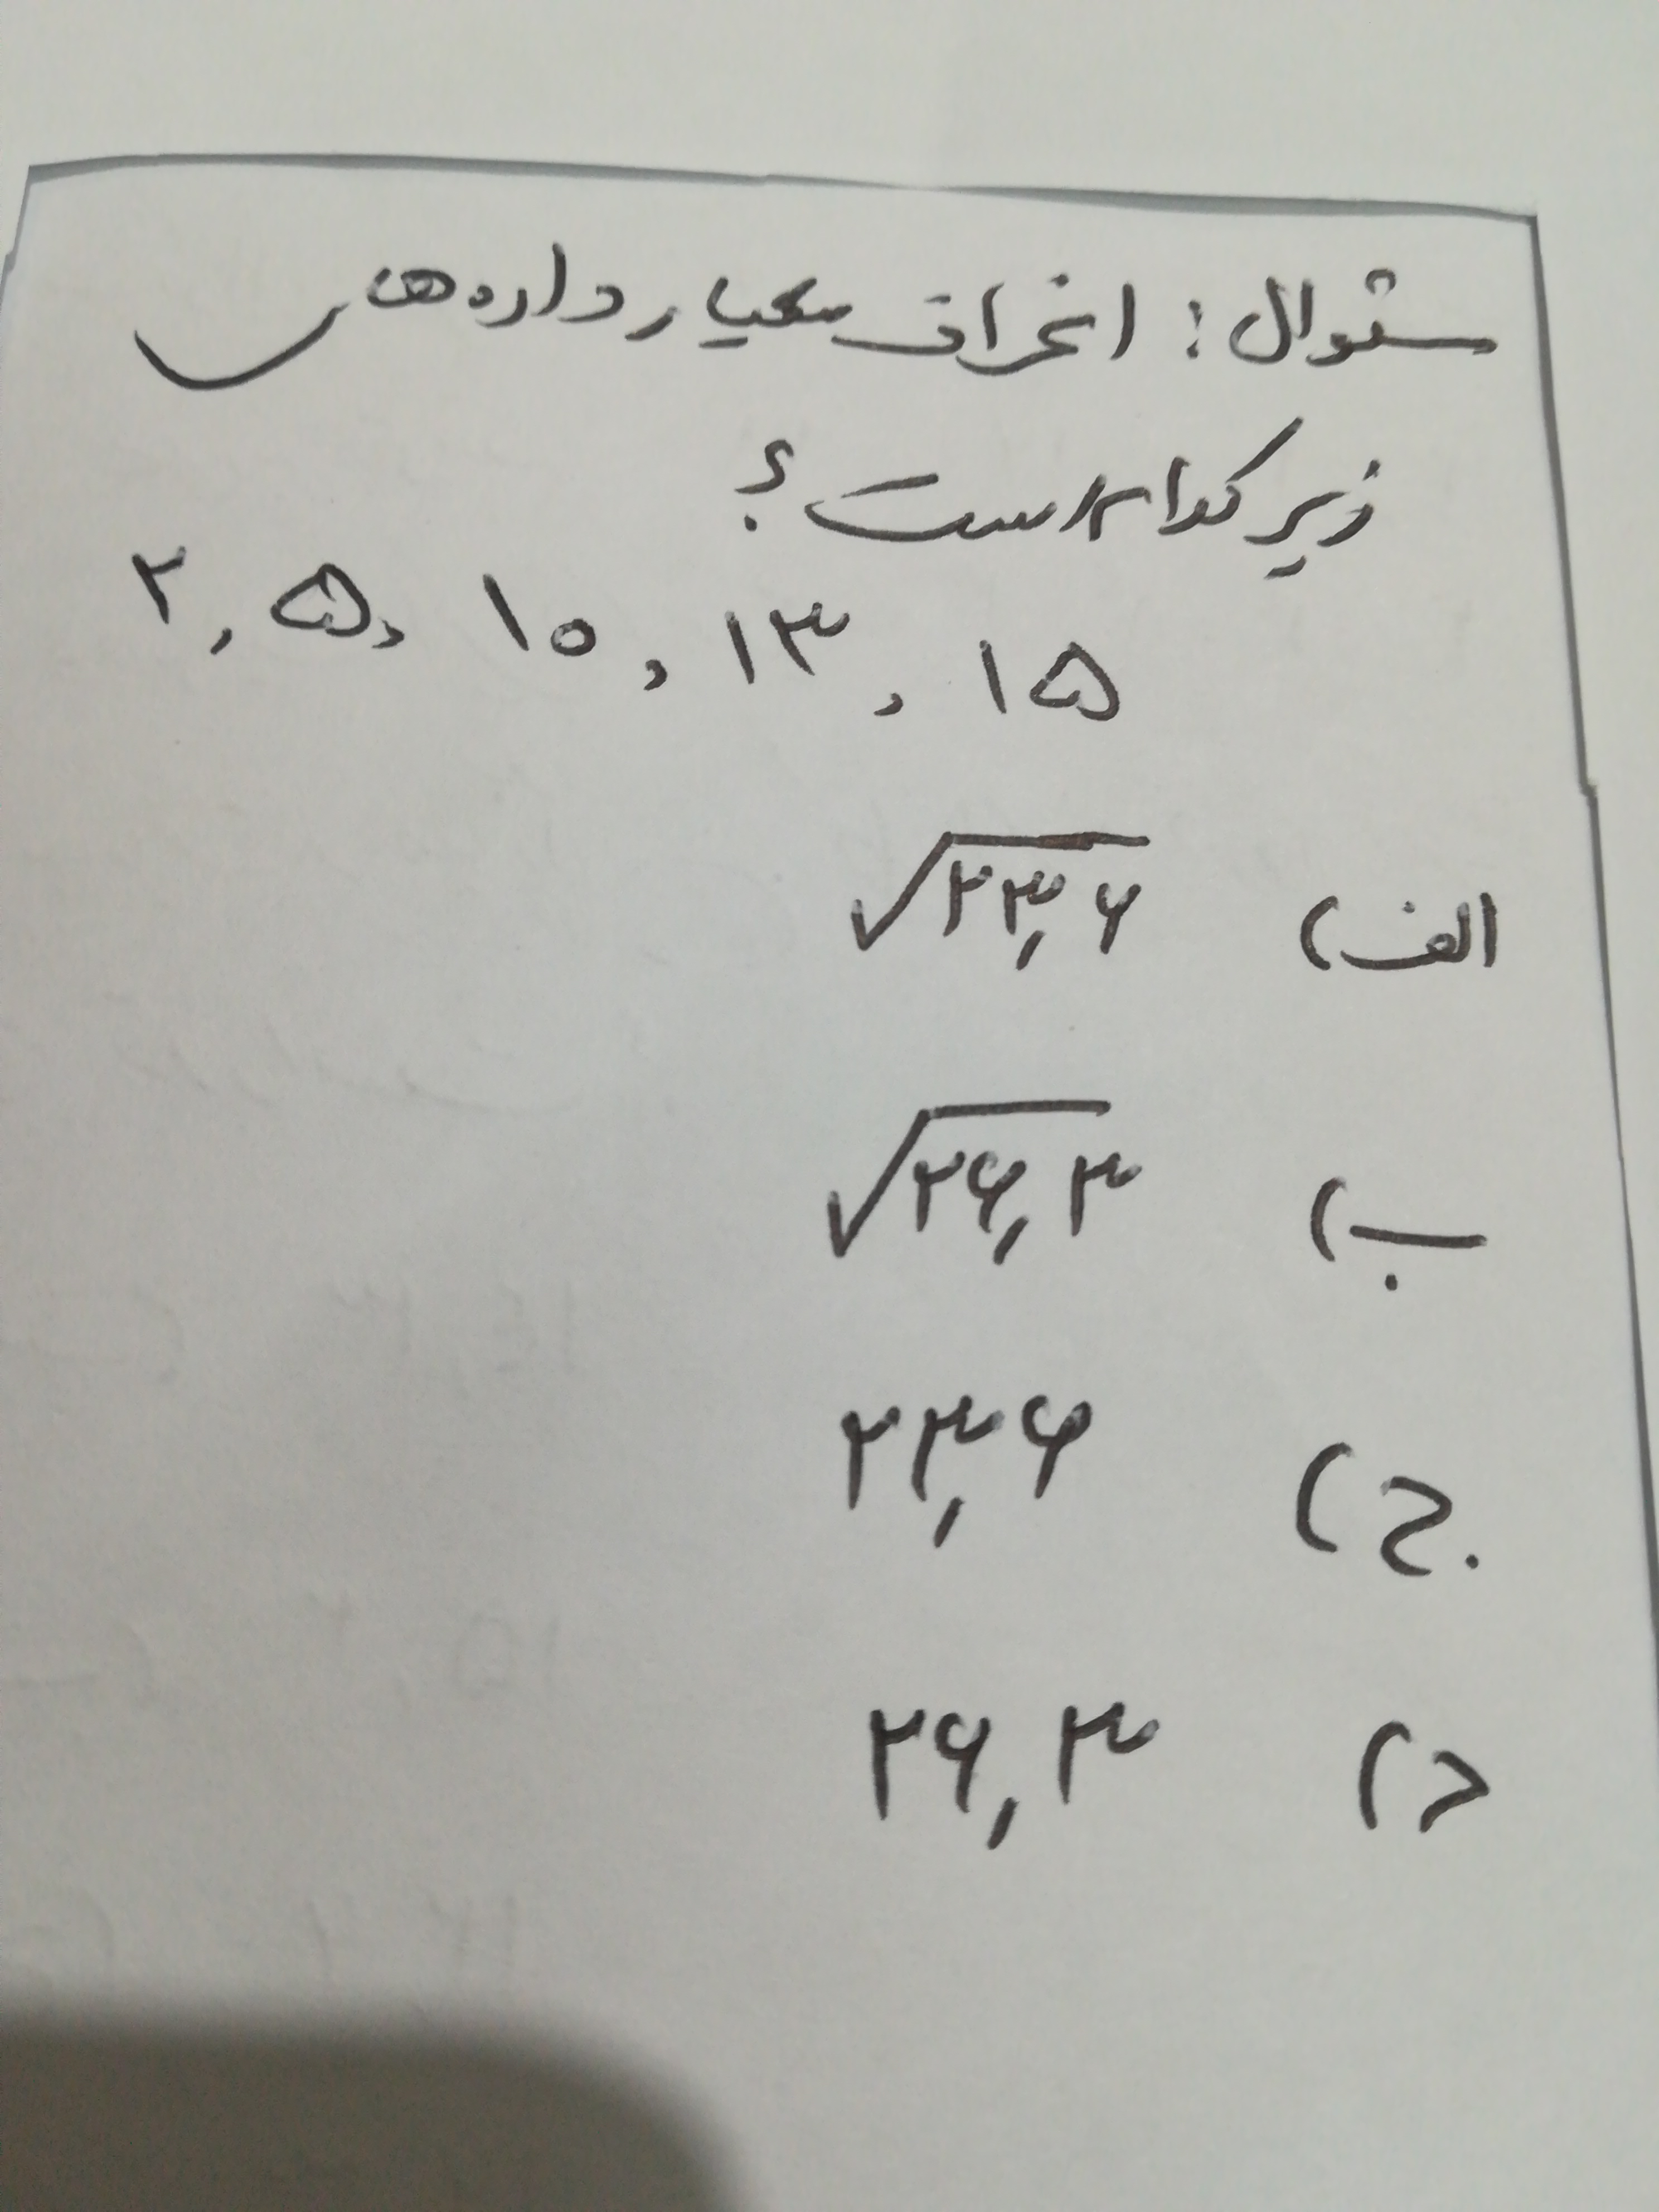 سئوال: انحراف معیار داده های
زیر کدام است؟
۲, ۵, ۱۰, ۱۳, ۱۵
الف) √۲۳,۶
ب) √۲۶,۳
ج) ۲۳,۶
د) ۲۶,۳